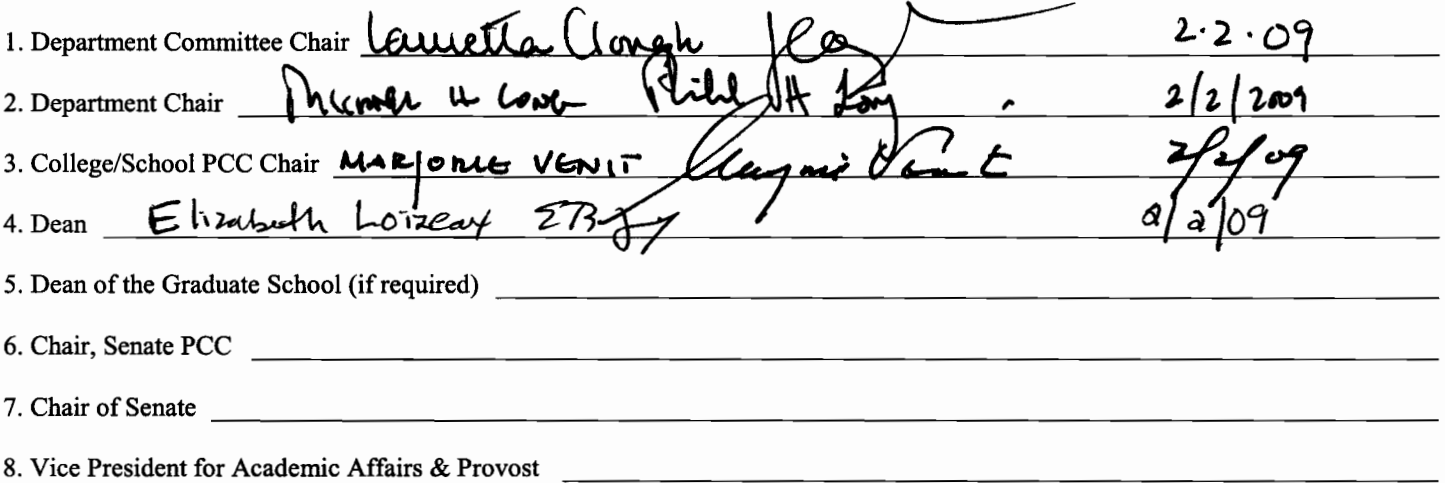 1. Department Committee Chair Lauretta Clough 2.2.09
2. Department Chair 2/2/2009
3. College/School PCC Chair MARJORIE VENIT 2/2/09
4. Dean Elizabeth Loizeaux 2/2/09
5. Dean of the Graduate School (if required)
6. Chair, Senate PCC
7. Chair of Senate
8. Vice President for Academic Affairs & Provost